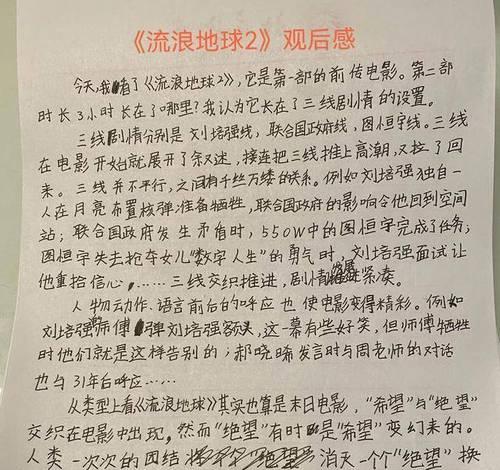 《流浪地球2》观后感
今天,我看了《流浪地球2》,它是第一部的前传电影。第二部
时长3小时长在了哪里?我认为它长在了三线剧情的设置。
三线剧情分别是刘培强线,联合国政府线,图恒宇线。三线
在电影开始就展开了叙述,接连把三线推上高潮,又拉了回
来。三线并不平行,之间有千丝万缕的关系。例如刘培强独自一
人在月亮布置核弹准备牺牲,联合国政府的影响令他回到空间
站;联合国政府发生矛盾时,550W中的图恒宇完成了任务;
图恒宇失去抢夺女儿"数字人生"的勇气时,刘培强面试让
他重拾信心,……三线交织推进,剧情紧凑。
人物动作、语言前后的呼应也使电影变得精彩。例如
刘培强师傅弹刘培强额头,这一幕有些好笑,但师傅牺牲
时他们就是这样告别的;郝晓晞发言时与周老师的对话
也与31年后呼应……
从类型上看《流浪地球》其实也算是末日电影,"希望"与"绝望"
交织在电影中出现,然而"绝望"有时是"希望"变幻来的。
人类一次次的团结 消灭一个个"绝望"换